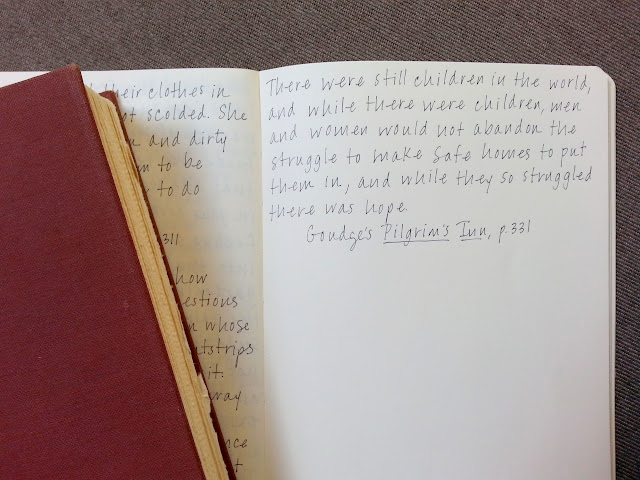 their clothes in
not scolded. She
and dirty
to be
to do
311
how
whose
it.
There were still children in the world,
and while there were children, men
and women would not abandon the
struggle to make safe homes to put
them in, and while they so struggled
there was hope.
Goudge's Pilgrim's Inn, p. 331